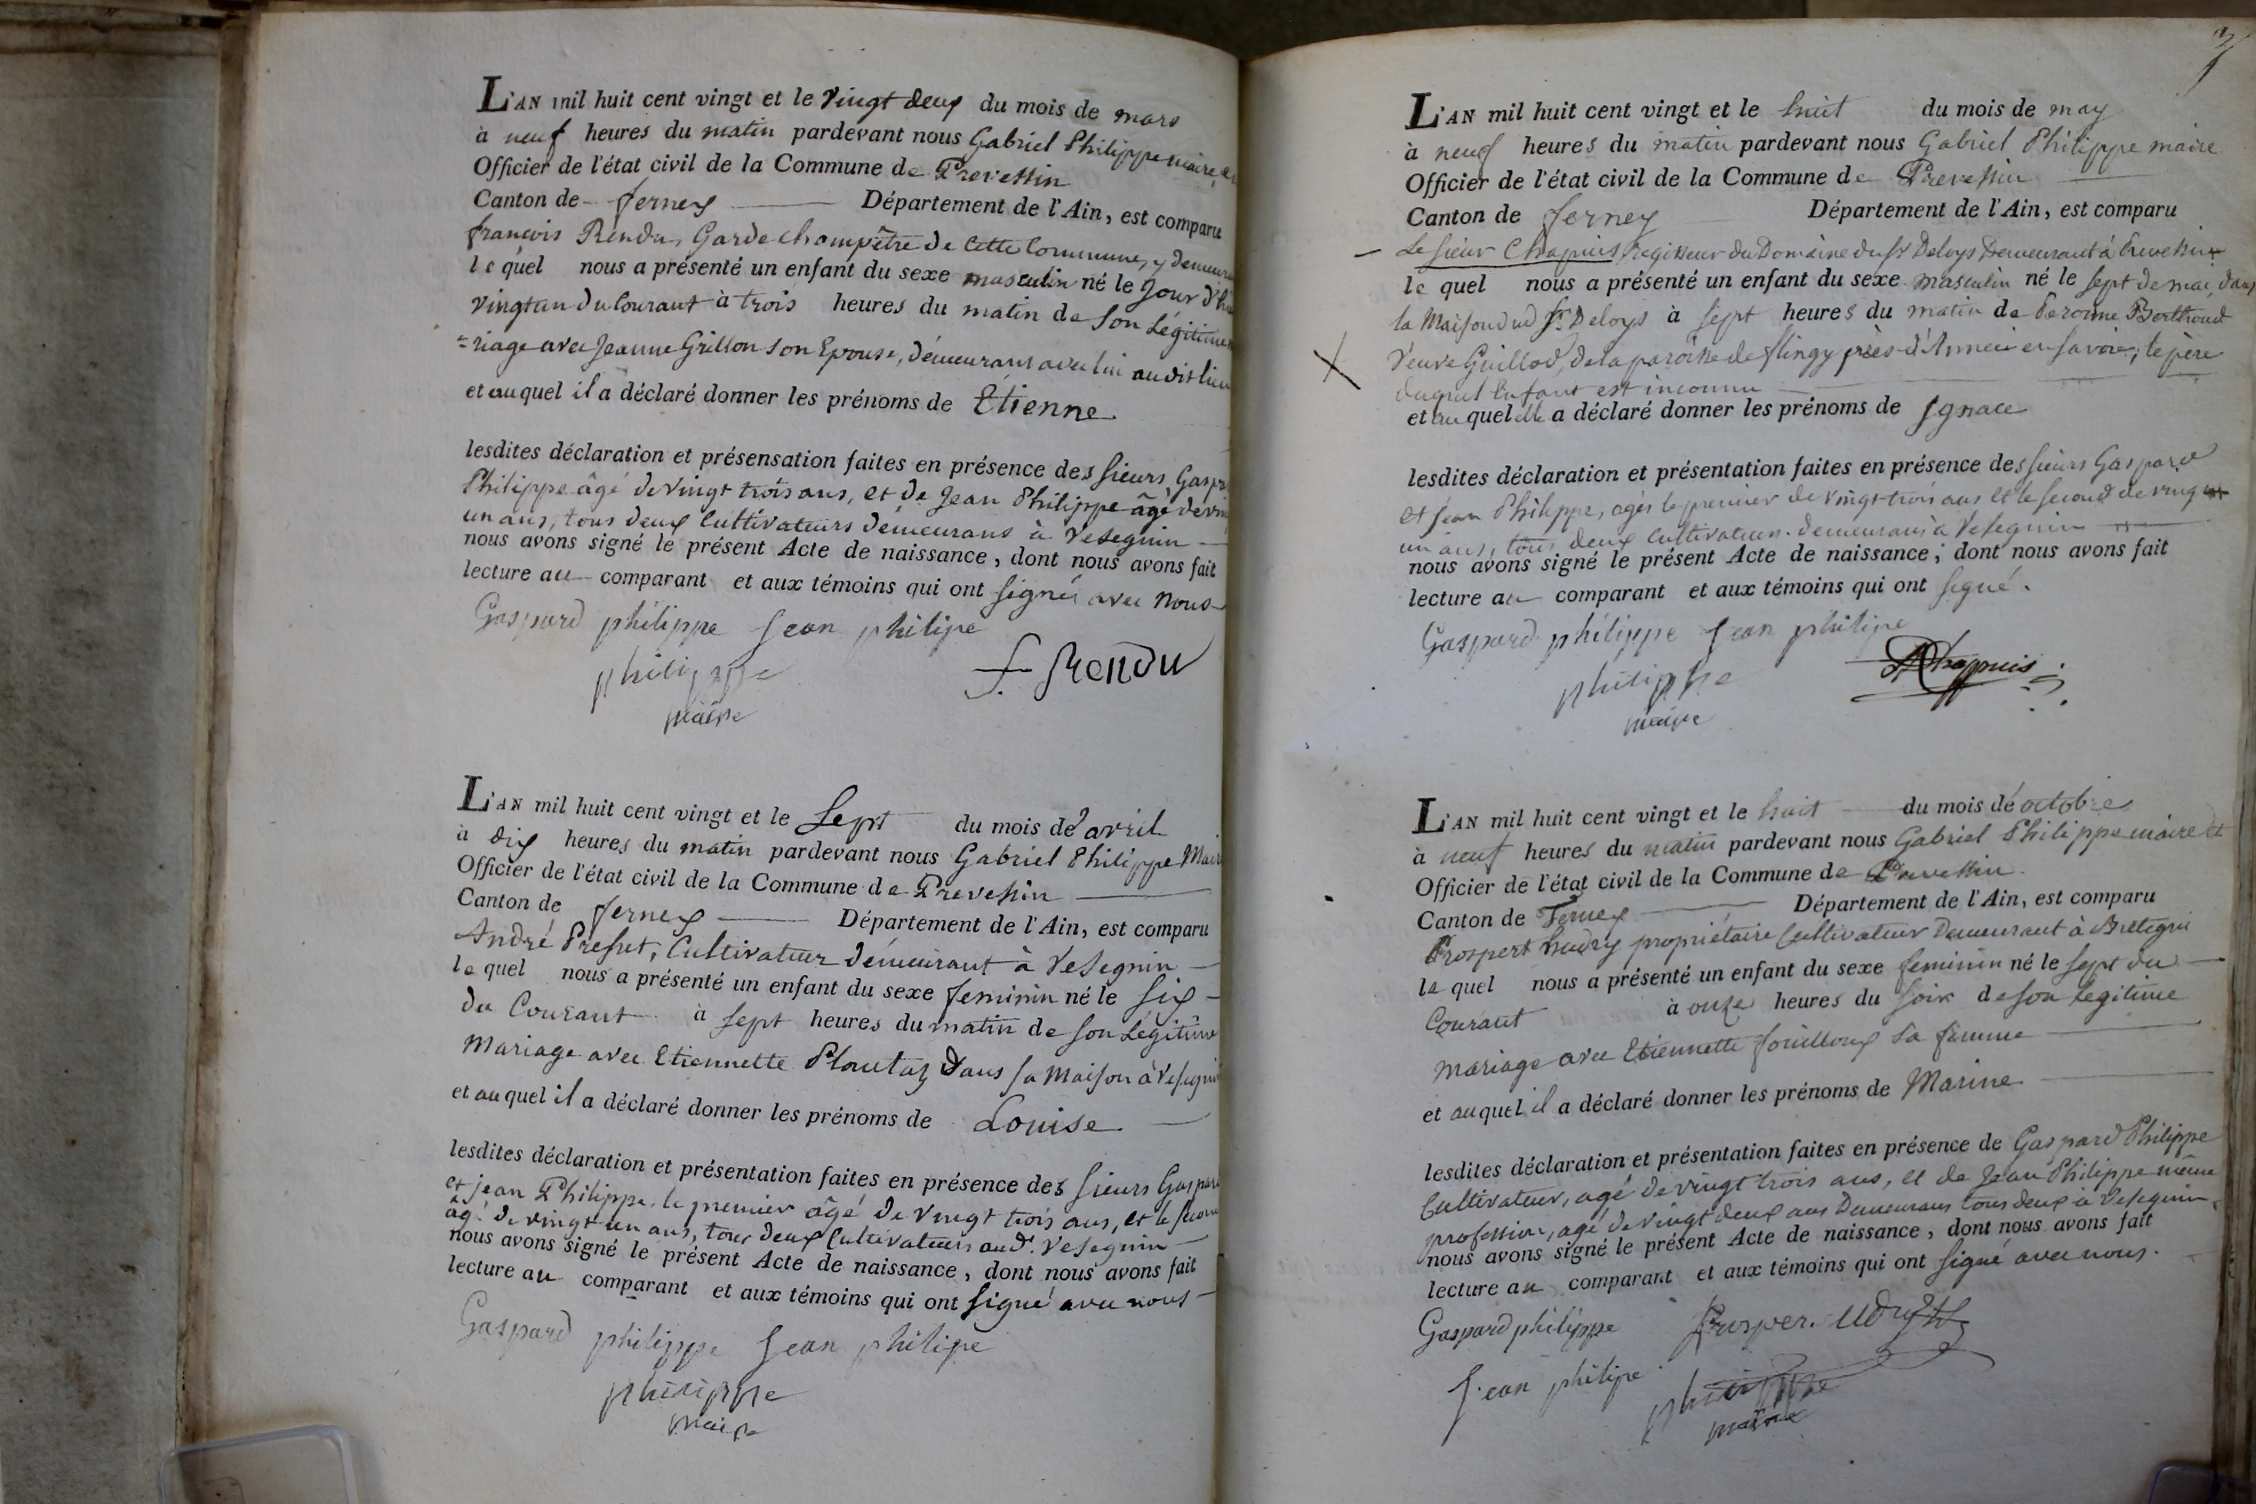 L'AN mil huit cent vingt et le vingt deux du mois de mars
à neuf heures du matin pardevant nous Gabriel Philippe maire et
Officier de l'état civil de la Commune de Prevessin
Canton de ferney Département de l'Ain, est comparu
françois Rendu, Garde champêtre de cette Commune, y demeurant
le quel nous a présenté un enfant du sexe masculin né le Jour d'hier
vingt un du Courant à trois heures du matin de son Légitime
=riage avec Jeanne Grillon son Epouse, démeurans avec lui audit lieu
et auquel il a déclaré donner les prénoms de Etienne
lesdites déclaration et présensation faites en présence des sieurs Gaspard
Philippe âgé de vingt trois ans, et de Jean Philippe âgé de vingt
un ans, tous deux Cultivateurs démeurans à Vesegnin
nous avons signé le présent Acte de naissance, dont nous avons fait
lecture au comparant et aux témoins qui ont signés avec nous
Gaspard philippe Jean philipe
philippe f. Rendu
maire
L'AN mil huit cent vingt et le Sept du mois dé avril
à dix heures du matin pardevant nous Gabriel Philippe Maire
Officier de l'état civil de la Commune de Prevessin
Canton de ferney Département de l'Ain, est comparu
André Cultivateur démeurant à Vesegnin
le quel nous a présenté un enfant du sexe feminin né le six
du Courant à sept heures du matin de son Légitime
Mariage avec Etiennette Dans sa Maison à Vesegnin
et auquel il a déclaré donner les prénoms de Louise
lesdites déclaration et présentation faites en présence des sieurs Gaspard
et jean Philippe, le premier âgé de vingt trois ans, et le second
âgé de vingt un ans, tous deux Cultivateurs aud.t Vesegnin
nous avons signé le présent Acte de naissance, dont nous avons fait
lecture au comparant et aux témoins qui ont signé avec nous
Gaspard philippe Jean philipe
philippe
maire
3
L'AN mil huit cent vingt et le huit du mois de may
à neuf heures du matin pardevant nous Gabriel Philippe maire
Officier de l'état civil de la Commune de Prevessin
Canton de ferney Département de l'Ain, est comparu
Le sieur Chapuis, regisseur du Domaine du Sr Deloys Demeurant à Prevessin
le quel nous a présenté un enfant du sexe masculin né le sept de mai, dans
la Maison dud Sr. Deloys à sept heures du matin de Peronne Berthoud
Veuve Guillod, de la paroisse de près d'Anneci en Savoie, le père
duquel Enfant est inconnu
et au quel elle a déclaré donner les prénoms de Ignace
lesdites déclaration et présentation faites en présence des sieurs Gaspard
et Jean Philippe, agés le premier de vingt trois ans et le second de vingt
un ans, tous deux Cultivateurs demeurans à Vesegnin
nous avons signé le présent Acte de naissance, dont nous avons fait
lecture au comparant et aux témoins qui ont signé.
Gaspard philippe Jean philipe
philippe Chappuis
maire
L'AN mil huit cent vingt et le huit du mois dé octobre
à neuf heures du matin pardevant nous Gabriel Philippe maire et
Officier de l'état civil de la Commune de Prevessin
Canton de Ferney Département de l'Ain, est comparu
Prospert hudry propriétaire Cultivateur Demeurant à Bretegni
le quel nous a présenté un enfant du sexe feminin né le sept du
Courant à onze heures du soir de son Legitime
Mariage avec Etiennette fouilloux sa femme
et auquel il a déclaré donner les prénoms de Marine
lesdites déclaration et présentation faites en présence de Gaspard Philippe
Cultivateur, agé de vingt trois ans, et de Jean Philippe même
profession, agé de vingt deux ans Demeurans tous deux à Vesegnin
nous avons signé le présent Acte de naissance, dont nous avons fait
lecture au comparant et aux témoins qui ont signé avec nous.
Gaspard philippe Prosper. udry
Jean philipe philippe
maire